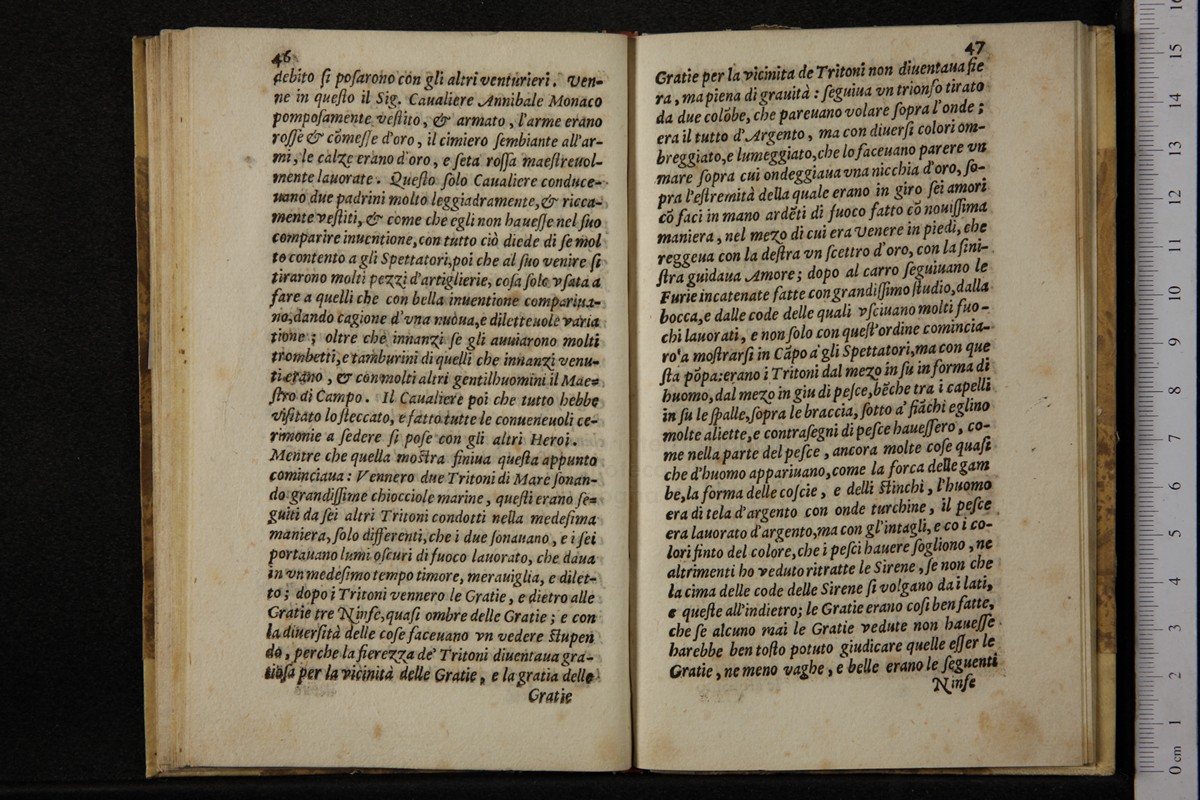 46
debito ſi poſarono con gli altri venturieri. Ven-
ne in queſto il Sig. Caualiere Annibale Monaco
pompoſamente veſtito, & armato, l'arme erano
roſſe & cõmeſſe d'oro, il cimiero ſembiante all'ar-
mi, le calze erano d'oro, e ſeta roſſa maeſtreuol-
mente lauorate. Queſto ſolo Caualiere conduce-
uano due padrini molto leggiadramente, & ricca-
mente veſtiti, & come che egli non haueſſe nel ſuo
comparire inuentione, con tutto ciò diede di ſe mol
to contento a gli Spettatori, poi che al ſuo venire ſi
tirarono molti pezzi d'artiglierie, coſa ſolo vſata a
fare a quelli che con bella inuentione compariua-
no, dando cagione d'vna nuoua, e diletteuole varia
tione; oltre che innanzi ſe gli auuiarono molti
trombetti, e tamburini di quelli che innanzi venu-
ti erano, & con molti altri gentilhuomini il Mae-
ſtro di Campo. Il Caualiere poi che tutto hebbe
viſitato lo ſteccato, e fatto tutte le conueneuoli ce-
rimonie a ſedere ſi poſe con gli altri Heroi.
Mentre che quella moſtra finiua queſta appunto
cominciaua: Vennero due Tritoni di Mare ſonan-
do grandiſſime chiocciole marine, queſti erano ſe-
guiti da ſei altri Tritoni condotti nella medeſima
maniera, ſolo differenti, che i due ſonauano, e i ſei
portauano lumi oſcuri di fuoco lauorato, che daua
in vn medeſimo tempo timore, merauiglia, e dilet-
to; dopo i Tritoni vennero le Gratie, e dietro alle
Gratie tre Ninfe, quaſi ombre delle Gratie; e con
la diuerſità delle coſe faceuano vn vedere ſtupen
do, perche la fierezza de' Tritoni diuentaua gra-
tioſa per la vicinità delle Gratie, e la gratia delle
Gratie
47
Gratie per la vicinita de Tritoni non diuentaua fie
ra, ma piena di grauità: ſeguiua vn trionfo tirato
da due colõbe, che pareuano volare ſopra l'onde;
era il tutto d'Argento, ma con diuerſi colori om-
breggiato, e lumeggiato, che lo faceuano parere vn
mare ſopra cui ondeggiaua vna nicchia d'oro, ſo-
pra l'eſtremità della quale erano in giro ſei amori
cõ faci in mano ardẽti di fuoco fatto cõ nouiſſima
maniera, nel mezo di cui era Venere in piedi, che
reggeua con la deſtra vn ſcettro d'oro, con la ſini-
ſtra guidaua Amore; dopo al carro ſeguiuano le
Furie incatenate fatte con grandiſſimo ſtudio, dalla
bocca, e dalle code delle quali vſciuano molti fuo-
chi lauorati, e non ſolo con queſt'ordine comincia-
ro'a moſtrarſi in Cãpo a gli Spettatori, ma con que
ſta põpa: erano i Tritoni dal mezo in ſu in forma di
huomo, dal mezo in giu di peſce, bẽche tra i capelli
in ſu le ſpalle, ſopra le braccia, ſotto a' fiãchi eglino
molte aliette, e contraſegni di peſce haueſſero, co-
me nella parte del peſce, ancora molte coſe quaſi
che d'huomo appariuano, come la forca delle gam
be, la forma delle coſcie, e delli ſtinchi, l'huomo
era di tela d'argento con onde turchine, il peſce
era lauorato d'argento, ma con gl'intagli, e co i co-
lori finto del colore, che i peſci hauere ſogliono, ne
altrimenti ho veduto ritratte le Sirene, ſe non che
la cima delle code delle Sirene ſi volgano da i lati,
e queſte all'indietro; le Gratie erano coſi ben fatte,
che ſe alcuno mai le Gratie vedute non haueſſe
harebbe ben toſto potuto giudicare quelle eſſer le
Gratie, ne meno vaghe, e belle erano le ſeguenti
Ninfe
0 cm 1 2 3 4 5 6 7 8 9 10 11 12 13 14 15